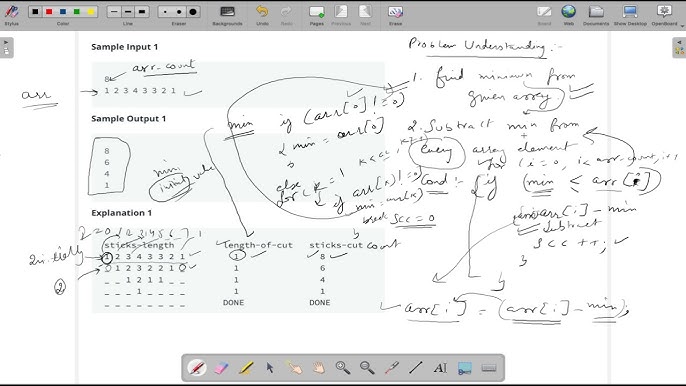 Stylus
Color
Line
Eraser
Backgrounds
Undo
Redo
Previous
Next
Erase
Board
Web
Documents
Show Desktop
OpenBoard
Sample Input 1
8 arr-count
1 2 3 4 3 3 2 1
arr
Sample Output 1
8
6
4
1
min
initially
value
min if (arr[0] != 0)
{ min = arr[0]
}
else
Problem Understanding :-
1. find minimum from
given array
2. Subtract min from
every array element
for (i=0, i<arr-count, i++
Cond :- {if (min < arr[i])
arr[i] - min
subtract
scc++;
}
}
arr[i] = (arr[i] - min);
if arr[x] != 0)
min = arr[x]
break
scc = 0
Explanation 1
sticks-length length-of-cut sticks-cut count
1 2 3 4 3 3 2 1 1 8
0 1 2 3 2 2 1 0 1 6
_ _ 1 2 1 1 _ _ 1 4
_ _ _ 1 _ _ _ _ 1 1
DONE DONE
2